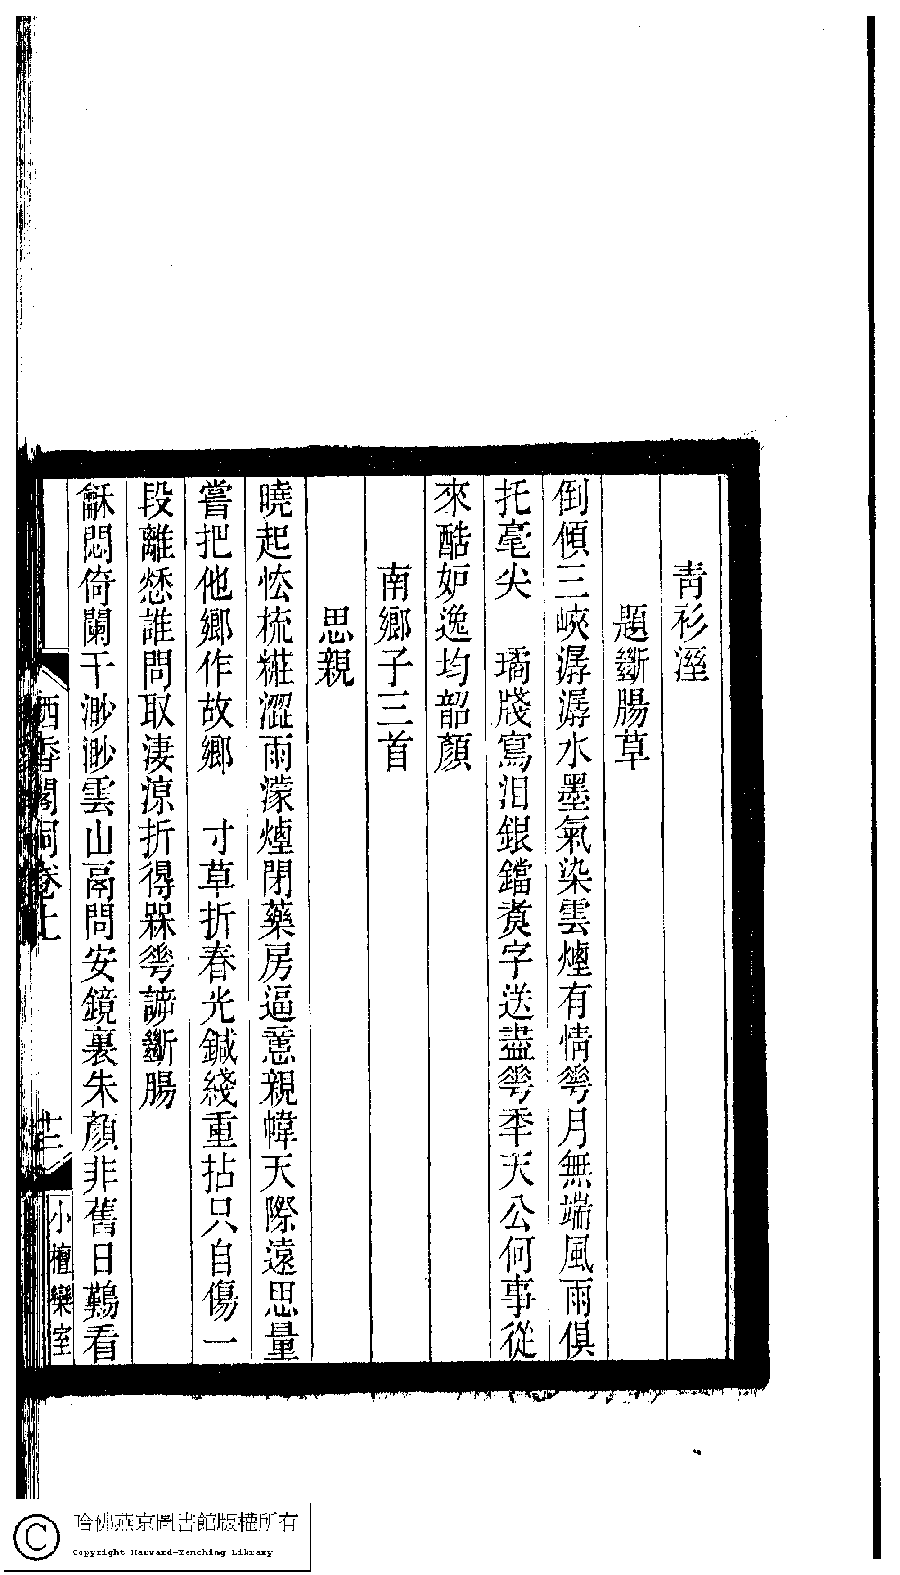 青衫溼
題斷腸草
倒傾三峽潺潺水墨氣染雲煙有情蕚月無端風雨俱
托毫尖　璚牋寫淚銀鐺煑字送盡蕚秊天公何事從
來酷妒逸均韶顏
南鄉子三首
思親
曉起怯梳糚澀雨濛煙閉藥房逼憲親幃天際遠思量
嘗把他鄉作故鄉　寸草折春光鍼綫重拈只自傷一
段離愁誰問取淒涼折得槑蕚諦斷腸
龢悶倚闌干渺渺雲山鬲問安鏡裏朱顏非舊日鷄看
栖香閣詞卷上
十三
小檀欒室
哈佛燕京圖書館版權所有
Copyright Harvard-Yenching Library